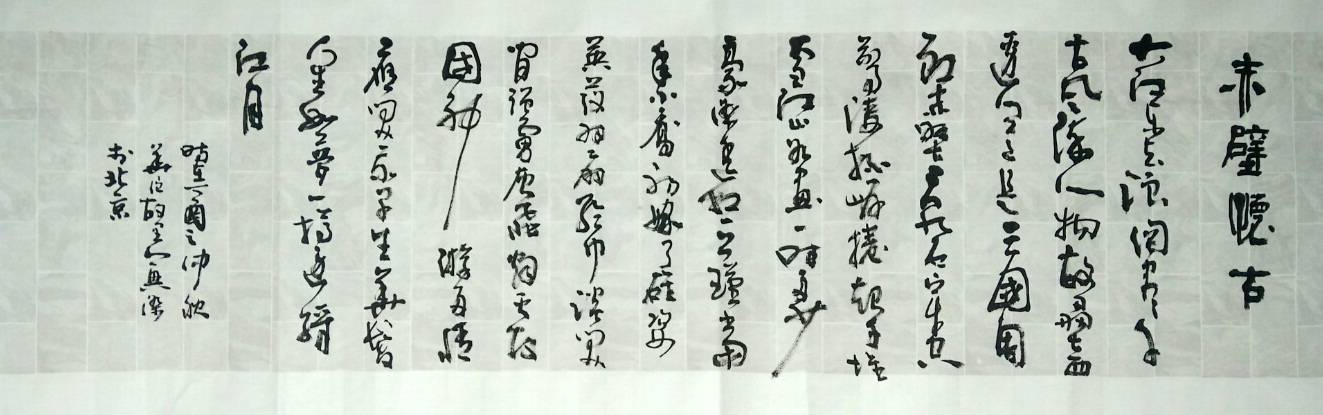 赤壁懷古
大江東去浪淘盡千
古風流人物故壘西
邊人道是三國周
郎赤壁亂石穿空
驚濤拍岸捲起千堆
雪江山如畫一時多少
豪傑遙想公瑾當
年小喬初嫁了雄姿
英發羽扇綸巾談笑
間強虜灰飛煙滅故
國神游多情
應笑我早生華髮
人生如夢一樽還酹
江月
時在丁酉之仲秋
故里
於北京